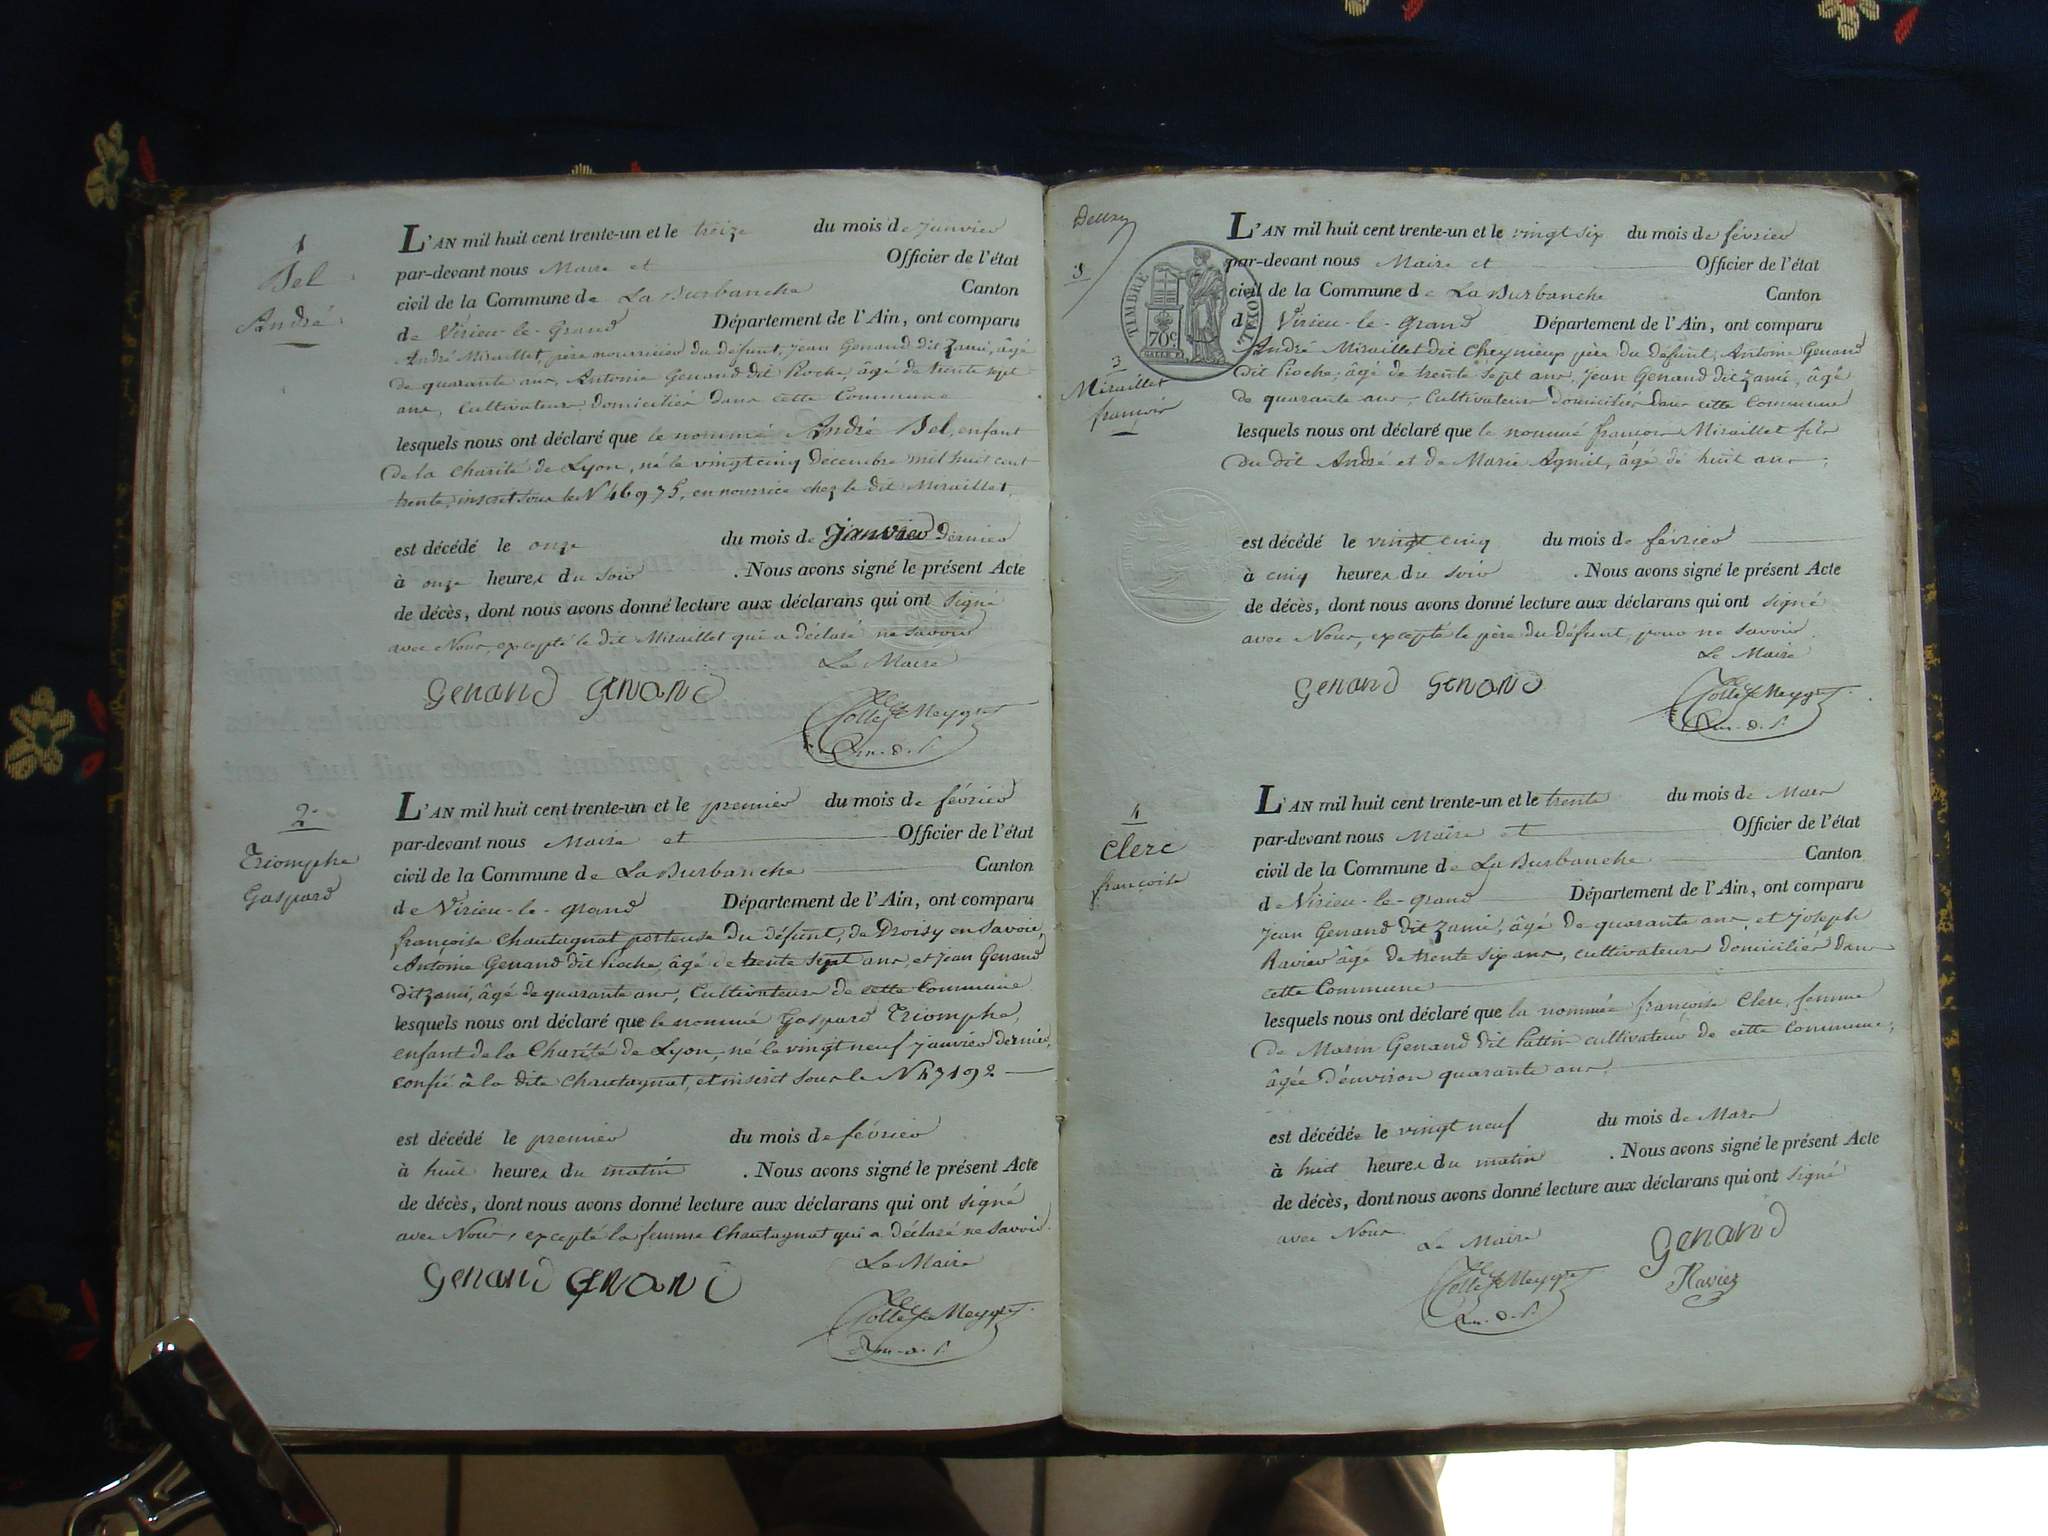 1
Bel
André
L'AN mil huit cent trente-un et le treize du mois de janvier
par-devant nous Maire et Officier de l'état
civil de la Commune de La Burbanche Canton
de Virieu-le-Grand Département de l'Ain, ont comparu
André Miraillet, père nourricier du défunt, Jean Genand dit Zami, âgé
de quarante ans, Antoine Genand dit Roche, âgé de trente sept
ans, cultivateurs domiciliés dans cette Commune
lesquels nous ont déclaré que le nommé André Bel, enfant
de la Charité de Lyon, né le vingt cinq décembre mil huit cent
trente, inscrit sous le N° 46975, en nourrice chez le dit Miraillet,
est décédé le onze du mois de janvier dernier
à onze heures du soir . Nous avons signé le présent Acte
de décès, dont nous avons donné lecture aux déclarans qui ont signé
avec Nous, excepté le dit Miraillet qui a déclaré ne savoir
Le Maire
Genand Genand
2
Triomphe
Gaspard
L'AN mil huit cent trente-un et le premier du mois de février
par-devant nous Maire et Officier de l'état
civil de la Commune de La Burbanche Canton
de Virieu-le-grand Département de l'Ain, ont comparu
françoise Chautagnat porteuse du défunt, de Droisy en Savoie,
Antoine Genand dit Roche, âgé de trente sept ans, et Jean Genand
dit zami, âgé de quarante ans, Cultivateurs de cette Commune
lesquels nous ont déclaré que le nommé Gaspard Triomphe,
enfant de la Charité de Lyon, né le vingt neuf janvier dernier,
confié à la dite Chautagnat, et inscrit sous le N° 47192
est décédé le premier du mois de février
à huit heures du matin . Nous avons signé le présent Acte
de décès, dont nous avons donné lecture aux déclarans qui ont signé
avec Nous, excepté la femme Chautagnat qui a déclaré ne savoir.
Le Maire
Genand Genand
3
TIMBRE ROYAL
70c
3
Miraillet
françois
L'AN mil huit cent trente-un et le vingt six du mois de février
par-devant nous Maire et Officier de l'état
civil de la Commune de La Burbanche Canton
de Virieu-le-Grand Département de l'Ain, ont comparu
André Miraillet dit Cheynieux père du défunt, Antoine Genand
dit Roche, âgé de trente sept ans, Jean Genand dit Zami, âgé
de quarante ans, Cultivateurs domiciliés dans cette Commune
lesquels nous ont déclaré que le nommé françois Miraillet fils
du dit André et de Marie Agniel, âgé de huit ans,
est décédé le vingt cinq du mois de février
à cinq heures du soir . Nous avons signé le présent Acte
de décès, dont nous avons donné lecture aux déclarans qui ont signé
avec Nous, excepté le père du défunt, pour ne savoir.
Le Maire
Genand Genand
4
Clerc
françoise
L'AN mil huit cent trente-un et le trente du mois de Mars
par-devant nous Maire et Officier de l'état
civil de la Commune de La Burbanche Canton
de Virieu-le-grand Département de l'Ain, ont comparu
Jean Genand dit zami, âgé de quarante ans, et Joseph
Ravier âgé de trente six ans, cultivateurs domiciliés dans
cette Commune
lesquels nous ont déclaré que la nommée françoise Clerc, femme
de Marin Genand dit Pattin cultivateur de cette Commune,
âgée d'environ quarante ans,
est décédée le vingt neuf du mois de Mars
à huit heures du matin . Nous avons signé le présent Acte
de décès, dont nous avons donné lecture aux déclarans qui ont signé
avec Nous
Le Maire
Genand
Ravier